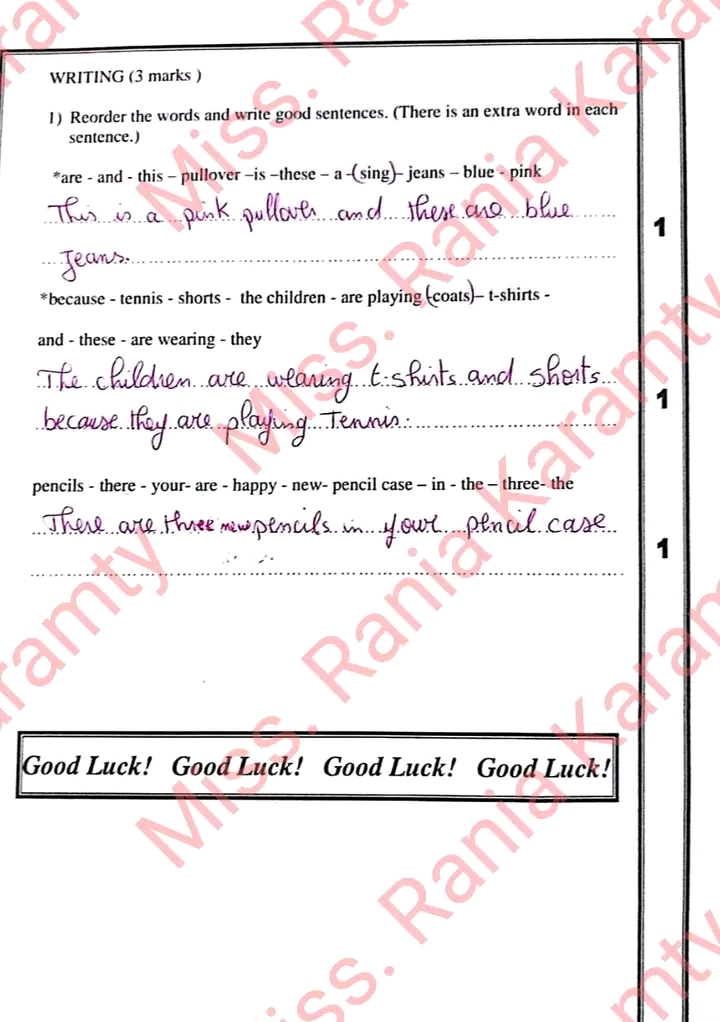 WRITING (3 marks )
1) Reorder the words and write good sentences. (There is an extra word in each
sentence.)
*are - and - this – pullover –is –these – a -(sing)- jeans – blue - pink
This is a pink pullover and these are blue
Jeans.
1
*because - tennis - shorts - the children - are playing (coats)– t-shirts -
and - these - are wearing - they
The children are wearing t-shirts and shorts
because they are playing Tennis.
1
pencils - there - your- are - happy - new- pencil case – in - the – three- the
There are three new pencils in your pencil case
1
Good Luck! Good Luck! Good Luck! Good Luck!
Miss. Rania Karamty